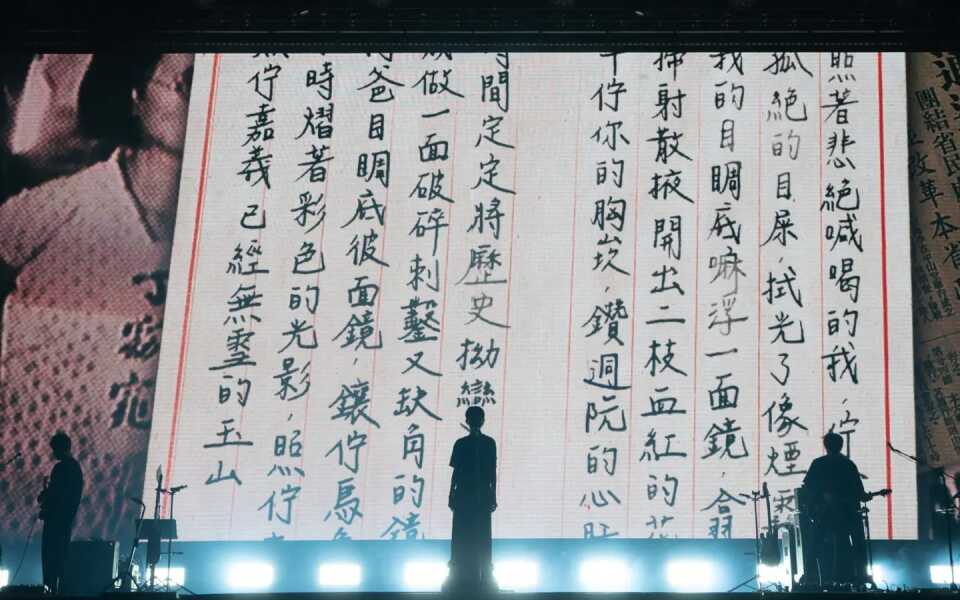 團結省民
改革本省
照著悲絕喊喝的我，佇
孤絕的目屎，拭光了像煙
我的目睭底嘛浮一面鏡，翕
掃射散掖開出二枝血紅的花
佇你的胸崁，鑽迵阮的心肝
時間定定將歷史拗彎
做一面破碎刺鑿又缺角的鏡
爸目睭底彼面鏡，鑲佇馬
時熠著彩色的光影，照佇
佇嘉義已經無雪的玉山